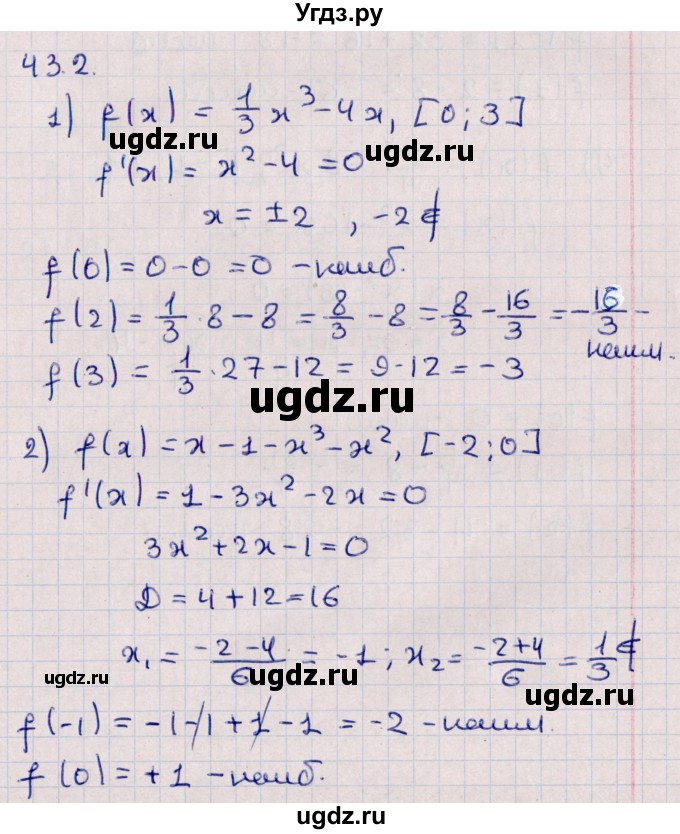 Угдз.ру
43.2.
1) f(x) = 1/3 x³ - 4x, [0; 3]
ugdz.ru ugdz.ru
f'(x) = x² - 4 = 0
x = ±2 , -2 ∉
f(0) = 0 - 0 = 0 - наиб.
f(2) = 1/3 · 8 - 8 = 8/3 - 8 = 8/3 - 16/3 = -16/3 -
наим.
f(3) = 1/3 · 27 - 12 = 9 - 12 = -3
ugdz.ru
2) f(x) = x - 1 - x³ - x², [-2; 0]
f'(x) = 1 - 3x² - 2x = 0
3x² + 2x - 1 = 0
D = 4 + 12 = 16
x₁ = (-2 - 4)/6 = -1; x₂ = (-2 + 4)/6 = 1/3 ∉
ugdz.ru ugdz.ru
f(-1) = -1 - 1 + 1 - 1 = -2 - наим.
f(0) = +1 - наиб.
ugdz.ru